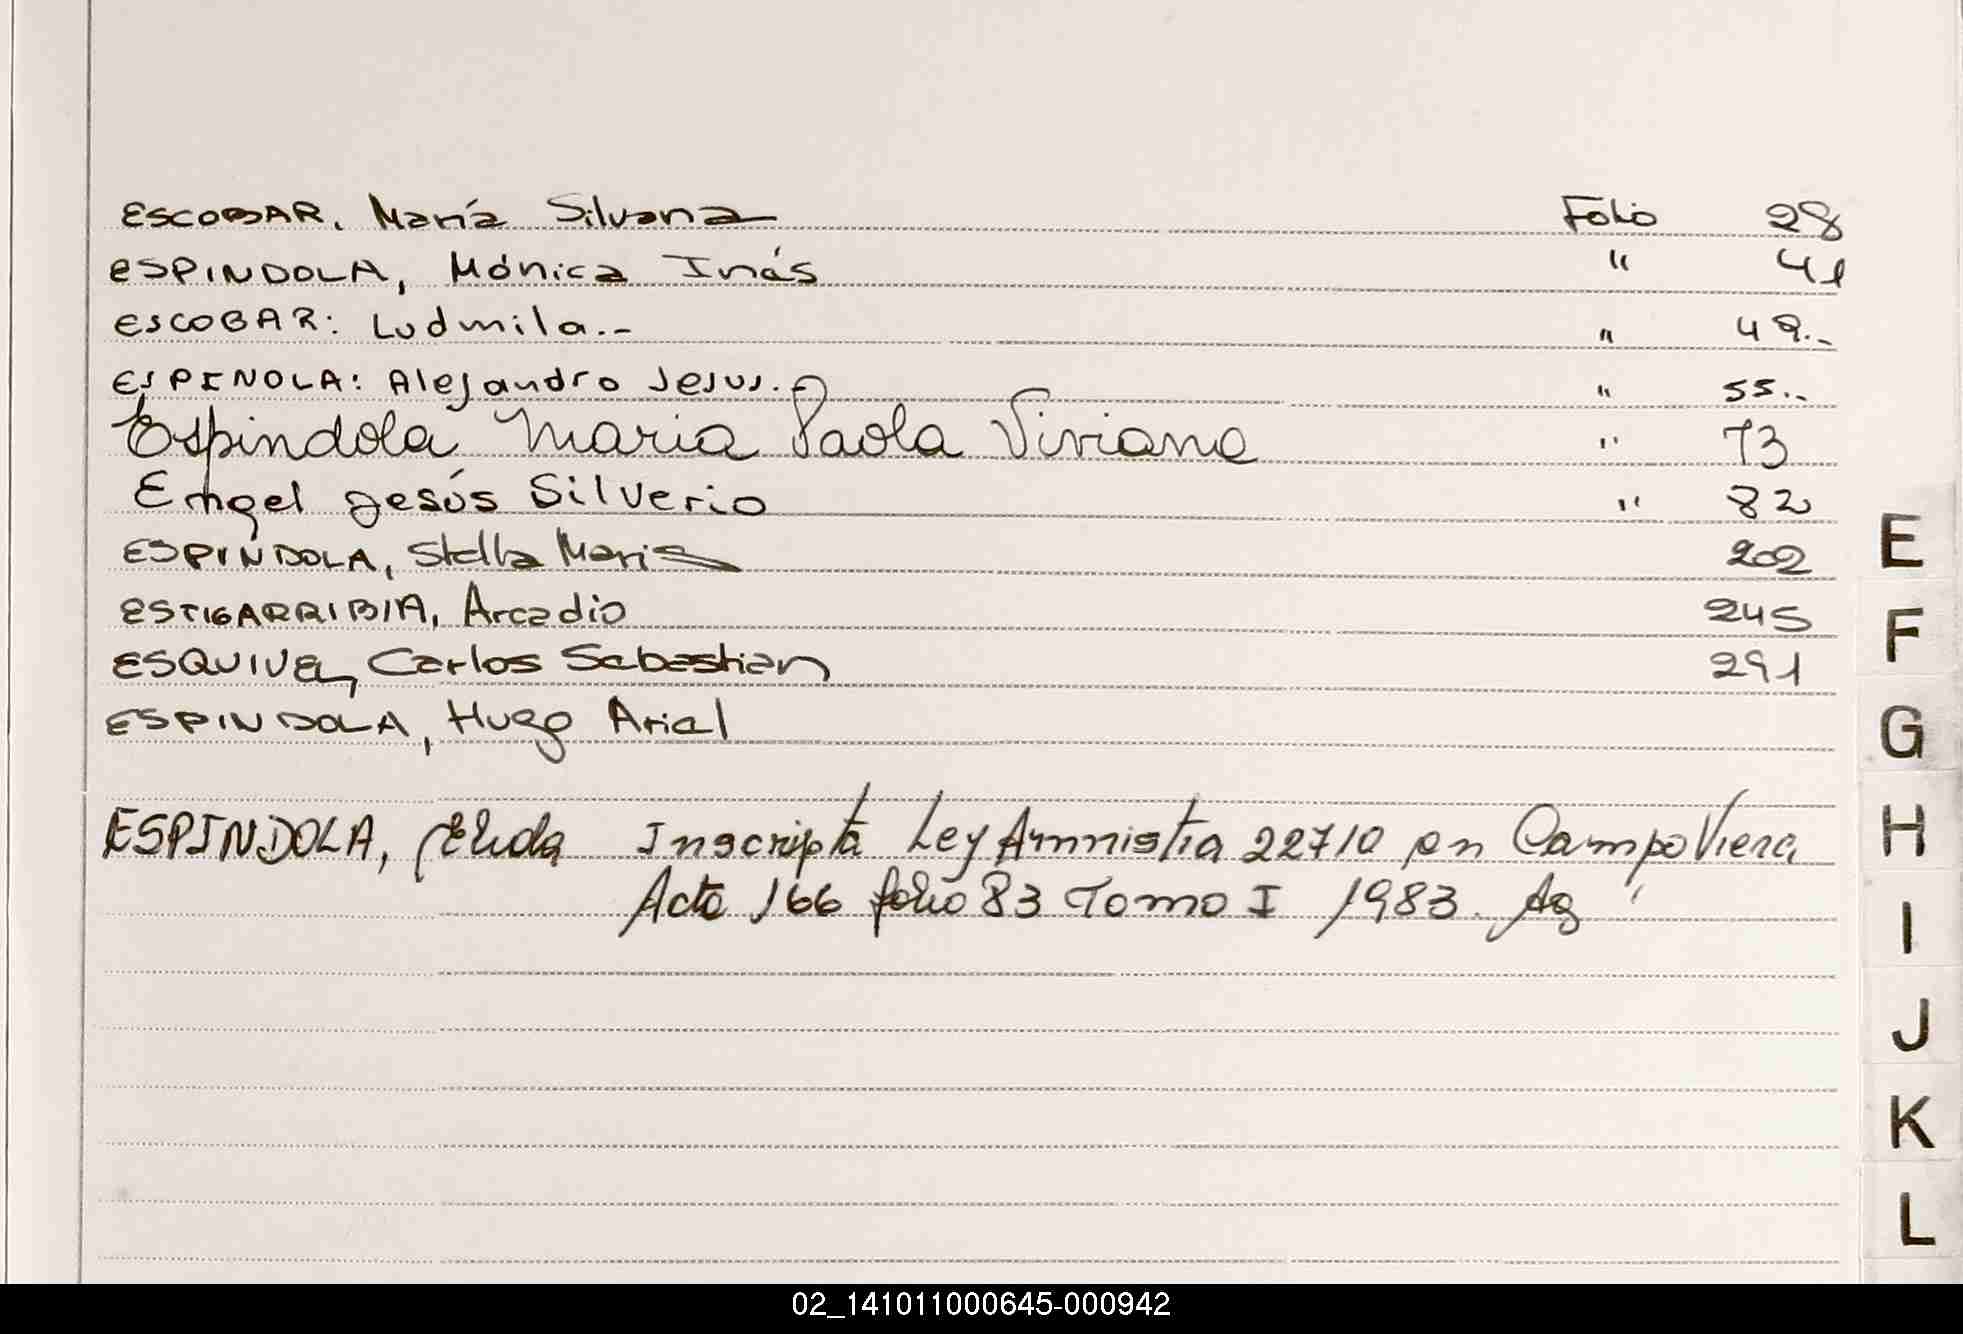 ESCOBAR, María Silvana Folio 28
ESPINDOLA, Mónica Inés " 41
ESCOBAR: Ludmila.- " 49.-
ESPINOLA: Alejandro Jesus.- " 55.-
Espindola Maria Paola Viviana " 73
Engel Jesús Silverio " 82
ESPINDOLA, Stella Maris 202
ESTIGARRIBIA, Arcadio 245
ESQUIVEL, Carlos Sebastian 291
ESPINDOLA, Hugo Ariel
ESPINDOLA, Elida Inscripta Ley Amnistia 22710 en Campo Viera
Acta 166 folio 83 Tomo I 1983.
E
F
G
H
I
J
K
L
02_141011000645-000942